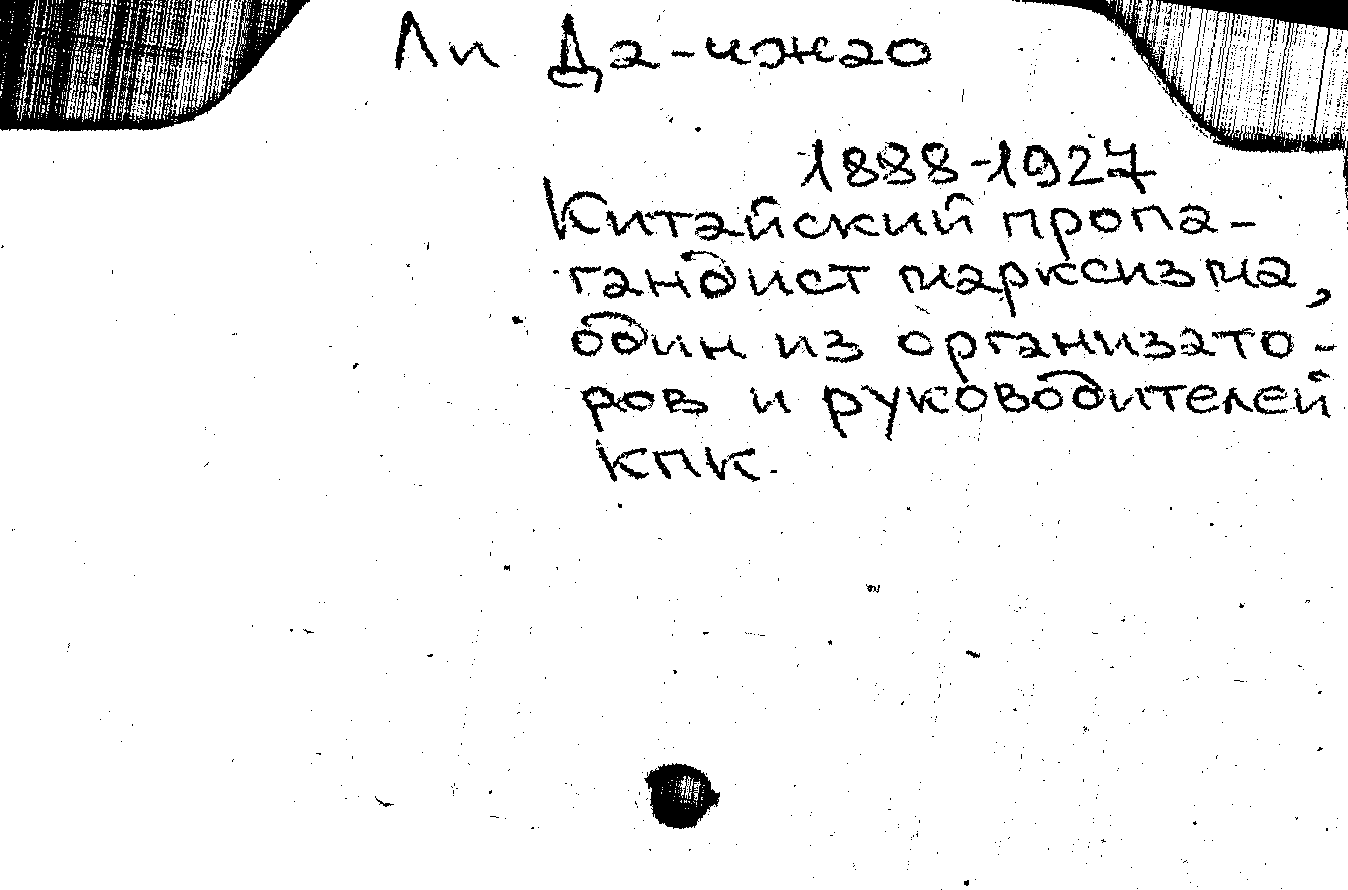 Ли Да-чжао
1888-1927
Китайский пропа-
гандист марксизма,
один из организато-
ров и руководителей
КПК.